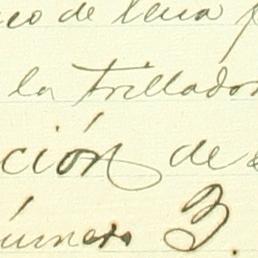 co de leña
la trillador
ción de
úmero 3.